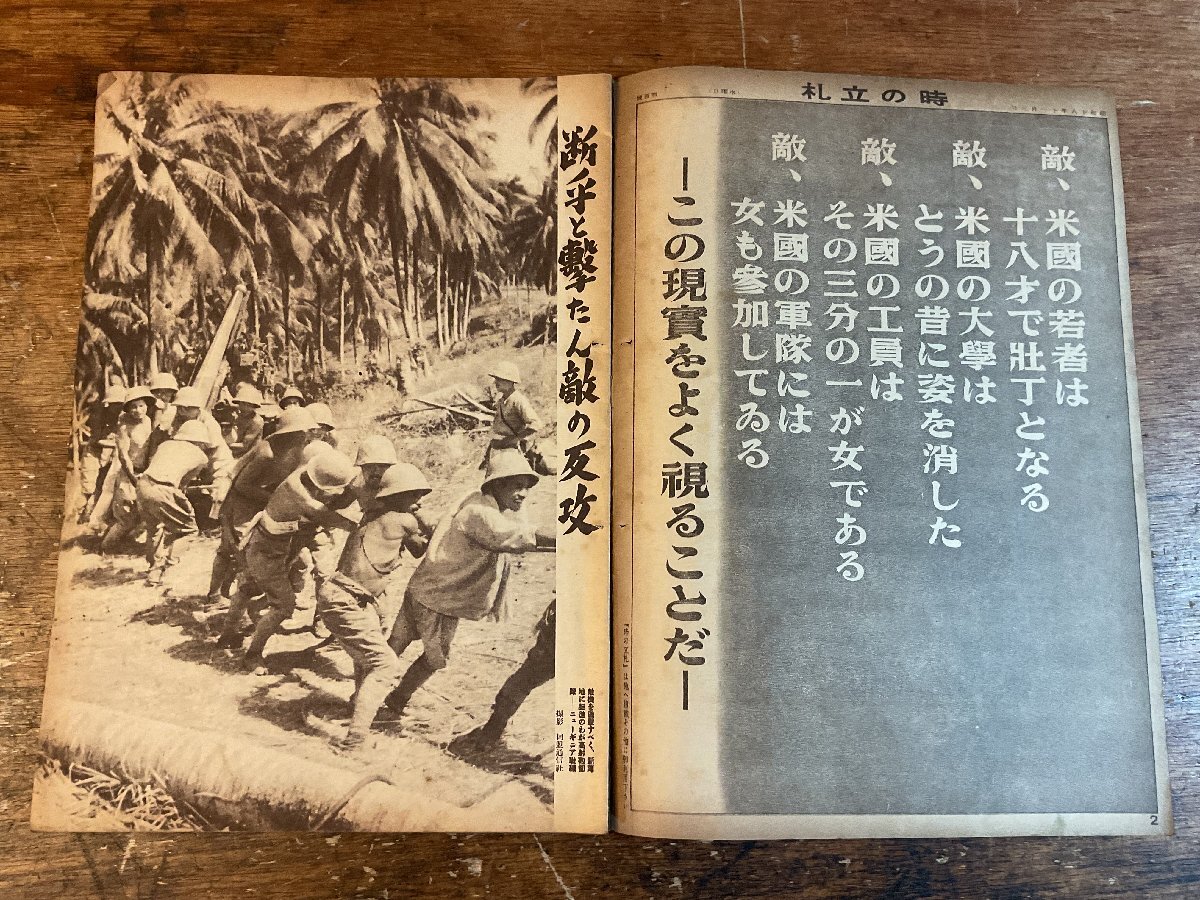 時の立札
敵、米國の若者は
十八才で壯丁となる
敵、米國の大學は
とうの昔に姿を消した
敵、米國の工員は
その三分の一が女である
敵、米國の軍隊には
女も參加してゐる
―この現實をよく視ることだ―
2
断乎と撃たん敵の反攻
撮影 同盟通信社